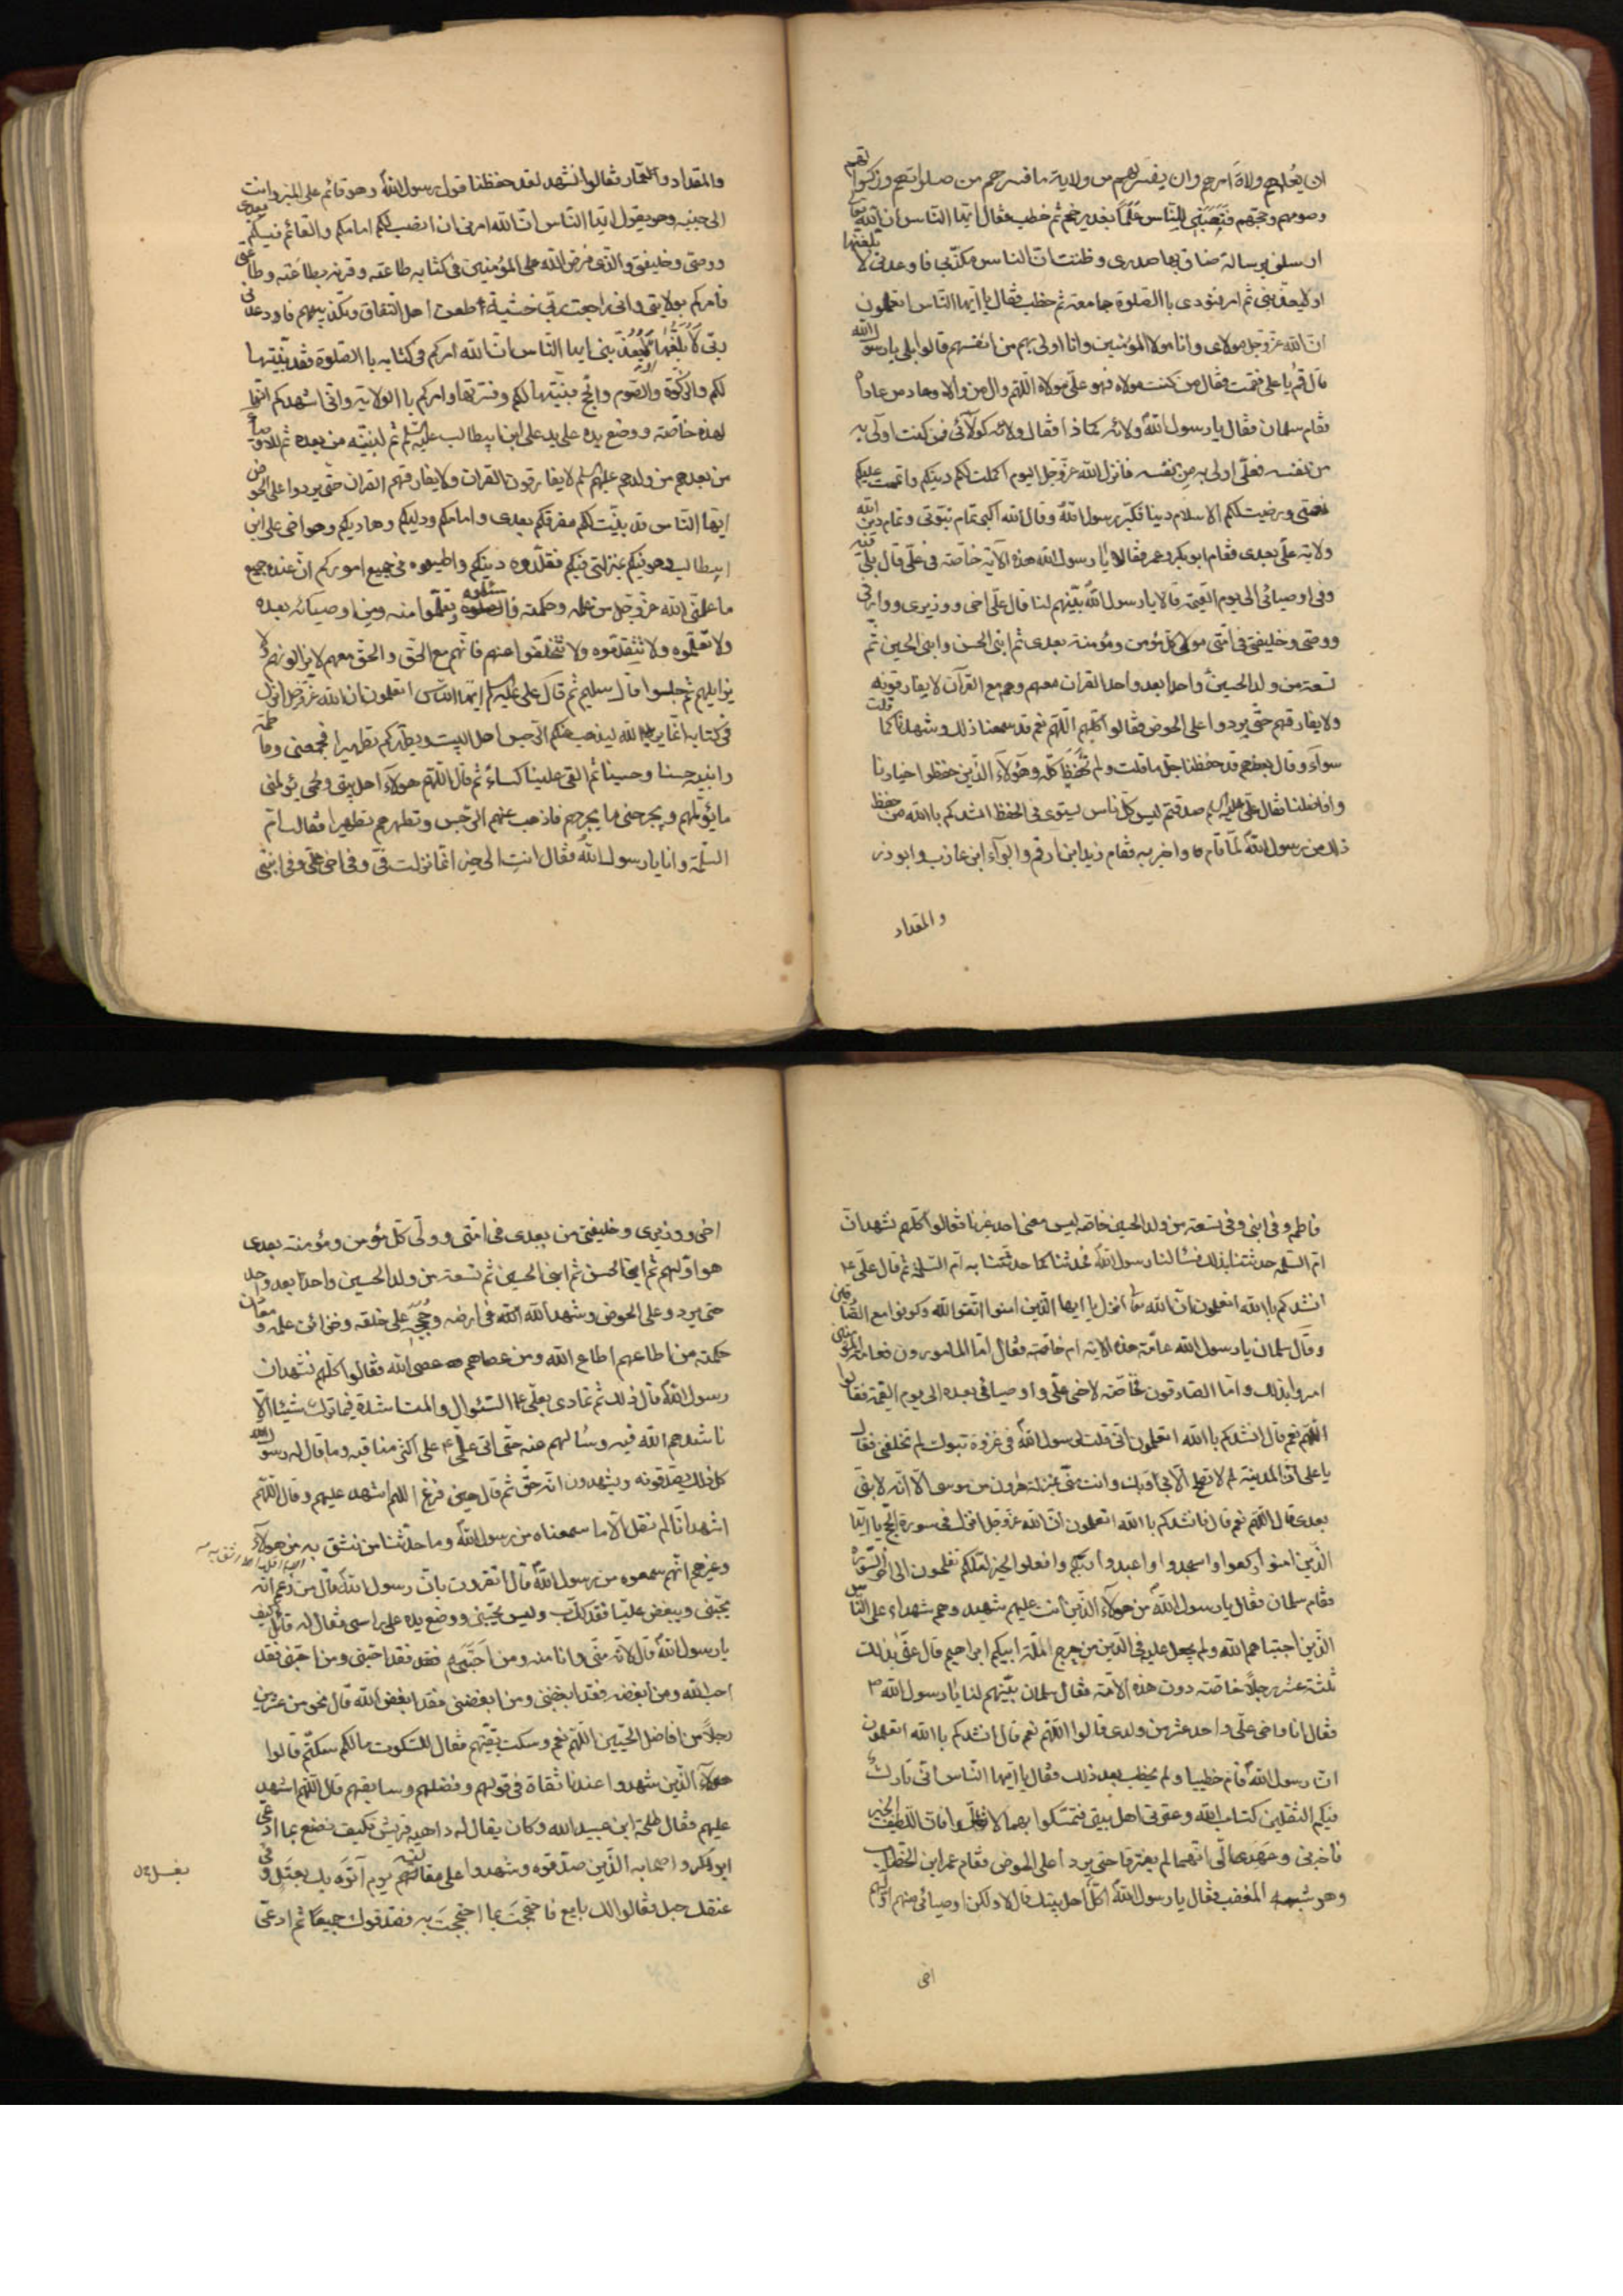 ان يعلمهم ولاة امرهم وان يفسر لهم من ولاية ما فسرهم من صلواتهم وزكوتهم
وصومهم وحجهم فنصبني للناس علما بغدير خم ثم خطب فقال ايها الناس ان الله تعا
ارسلني برسالة ضاق بها صدري وظننت ان الناس مكذبي فاوعدني لا بلغتها
او ليعذبني ثم امر بنودي باالصلوة جامعة ثم خطب فقال يا ايها الناس اتعلمون
ان الله عز وجل مولاي وانا مولا المؤمنين وانا اولى بهم من انفسهم قالوا بلى يا رسول الله
قال قم يا علي فقمت فقال من كنت مولاه فهو علي مولاه اللهم وال من والاه وعاد من عاداه
فقام سلمان فقال يا رسول الله ولائه كماذا فقال ولائه كولائي فمن كنت اولى به
من نفسه فعلي اولى به من نفسه فانزل الله عز وجل اليوم اكملت لكم دينكم واتممت عليكم
نعمتي ورضيت لكم الاسلام دينا فكبر رسول الله وقال الله اكبر تمام نبوتي وتمام دين الله
ولاية علي بعدي فقام ابو بكر وعمر فقالا يا رسول الله هذه الآية خاصة في علي قال بلى فيه
وفي اوصيائي الى يوم القيمة قالا يا رسول الله بينهم لنا قال علي اخي ووزيري ووارثي
ووصيي وخليفتي في امتي مولى كل مؤمن ومؤمنة بعدي ثم ابني الحسن وابني الحسين ثم
تسعة من ولد الحسين واحدا بعد واحد القران معهم وهم مع القرآن لا يفارقونه
ولا يفارقهم حتى يردوا على الحوض فقالوا كلهم اللهم نعم قد سمعنا ذلك وشهدنا كما قلت
سواء وقال بعضهم قد حفظنا جل ما قلت ولم نحفظ كله وهؤلاء الذين حفظوا اخيارنا
وافاضلنا فقال علي عليه السلم صدقتم ليس كل ناس يستوي في الحفظ انشدكم باالله من حفظ
ذلك من رسول الله لما قام واخبر به فقام زيد ابن ارقم والبراء ابن عازب وابو ذر
والمقداد
والمقداد والعمار فقالوا نشهد لقد حفظنا قول رسول الله وهو قائم على المنبر وانت
الى جنبه وهو يقول ايها الناس ان الله امرني ان انصب لكم امامكم والقائم فيكم بعدي
ووصيي وخليفتي والذي فرض الله على المؤمنين في كتابه طاعته وقرنه بطاعته وطاعتي
فامركم بولايتي واني راجعت ربي خشية طعن اهل النفاق وتكذيبهم فاوعدني
ربي لا بلغها او ليعذبني ايها الناس ان الله امركم في كتابه باالصلوة فقد بينتها
لكم والزكوة والصوم والحج فبينتها لكم وفسرتها وامركم باالولاية واني اشهدكم انها
لهذه خاصة ووضع يده على يد علي ابن ابيطالب عليه السلم ثم لبنيه من بعده ثم للاوصياء
من بعدهم من ولدهم عليهم السلم لا يفارقون القران ولا يفارقهم القران حتى يردوا على الحوض
ايها الناس قد بينت لكم مفزعكم بعدي وامامكم ودليكم وهاديكم وهو اخي علي ابن
ابيطالب وهو فيكم بمنزلتي فيكم فقلدوه دينكم واطيعوه في جميع اموركم ان عنده جميع
ما علمني الله عز وجل من علمه وحكمته فاسئلوه وتعلموا منه ومن اوصيائه بعده
ولا تعلموه ولا تتقدموه ولا تتخلفوا عنهم فانهم مع الحق والحق معهم لا يزالونه ولا
يزايلهم ثم جلسوا قال سليم ثم قال علي عليه السلم ايها الناس اتعلمون ان الله عز وجل انزل
في كتابه انما يريد الله ليذهب عنكم الرجس اهل البيت ويطهركم تطهيرا فجمعني وفاطمة
وابنيه حسنا وحسينا ثم القى علينا كساء ثم قال اللهم هؤلاء اهل بيتي ولحمي يؤلمني
ما يؤلمهم ويجرحني ما يجرحهم فاذهب عنهم الرجس وتطهرهم تطهيرا فقالت ام
السلمة وانا يا رسول الله فقال انت الى خير انما نزلت في وفي اخي علي وفي ابنتي
فاطمة وفي ابني وفي تسعة من ولد الحسين خاصة ليس معني احد غيرنا فقالوا كلهم نشهد ان
ام السلمة حدثتنا بذلك فسالنا رسول الله فحدثنا كما حدثتنا به ام السلمة ثم قال علي ع
انشدكم باالله اتعلمون ان الله تعا انزل يا ايها الذين امنوا اتقوا الله وكونوا مع الصادقين
وقال سلمان يا رسول الله عامة هذه الاية ام خاصة فقال اما المامورون فعامة المؤمنين
امروا بذلك واما الصادقون خاصة لاخي علي واوصيائي بعده الى يوم القيمة فقالوا
اللهم نعم قال انشدكم باالله اتعلمون اني قلت لرسول الله في غزوة تبوك لم تخلفني فقال
يا علي ان المدينة لم لا تصلح الا بي او بك وانت مني بمنزلة هرون من موسى الا انه لا نبي
بعدي قال اللهم نعم قال فانشدكم باالله اتعلمون ان الله عز وجل انزل في سورة الحج يا ايها
الذين امنوا اركعوا واسجدوا واعبدوا ربكم وافعلوا الخير لعلكم تفلحون الى اخر السورة
فقام سلمان فقال يا رسول الله من هؤلاء الذين انت عليهم شهيد وهم شهداء على الناس
الذين اجتباهم الله ولم يجعل عليه في الدين من حرج الملة ابيكم ابراهيم قال عنى بذلك
ثلثة عشر رجلا خاصة دون هذه الامة فقال سلمان بينهم لنا يا رسول الله
فقال انا واخي علي واحد عشر من ولدي قالوا اللهم نعم قال انشدكم باالله اتعلمون
ان رسول الله قام خطيبا ولم يخطب بعد ذلك فقال يا ايها الناس اني تارك
فيكم الثقلين كتاب الله وعترتي اهل بيتي فتمسكوا بهما لا تضلوا فان اللطيف الخبير
فاخبرني وعهد الي انهما لم يفترقا حتى يردا على الحوض فقام عمر ابن الخطاب
وهو شبه المغضب فقال يا رسول الله اكل اهل بيتك قال لا ولكن اوصيائي منهم اولهم
اخي
اخي ووزيري وخليفتي من بعدي في امتي وولي كل مؤمن ومؤمنة بعدي
هو اولهم ثم ابني الحسن ثم ابني الحسين ثم تسعة من ولد الحسين واحدا بعد واحد
حتى يردو على الحوض وشهدا لله الله في ارضه وحججه على خلقه وخزائن علمه ومعادن
حكمته من اطاعهم اطاع الله ومن عصاهم عصى الله فقالوا كلهم نشهد ان
رسول الله قال ذلك ثم تمادى بعلي السئوال والمناشدة فما ترك شيئا الا
ناشدهم الله فيه وسالهم عنه حتى اتى علي ع على اكثر مناقبه وما قال له رسول الله
كل ذلك يصدقونه ويشهدون انه حق ثم قال حين فرغ اللهم اشهد عليهم وقال اللهم
اشهد انا لم نقل الا ما سمعناه من رسول الله وما حدثنا من نثق به من هؤلاء
وغيرهم انهم سمعوه من رسول الله قال اتقرون بان رسول الله قال من زعم انه
يحبني ويبغض عليا فقد كذب وليس يحبني ووضع يده على راسي فقال له قائل كيف
يا رسول الله قال لانه مني وانا منه ومن احبه فقد فقد احبني ومن احبني فقد
احب الله ومن ابغضه فقد ابغضني ومن ابغضني فقد ابغض الله قال نحو من عشرين
رجلا من افاضل الحيين اللهم نعم وسكت بقيتهم فقال للسكوت ما لكم سكتم قالوا
هؤلاء الذين شهدوا عندنا ثقاة في قولهم وفضلهم وسابقهم قال اللهم اشهد
عليهم فقال طلحة ابن عبيد الله وكان يقال له داهية قريش فكيف نصنع بما ادعى
ابو بكر واصحابه الذين صدقوه وشهدوا على مقالته يوم اتوه بك بعتل وفي
عنقك حبل فقالوا لك بايع فاحتججت بما احتججت به فصدقوك جميعا ثم ادعى